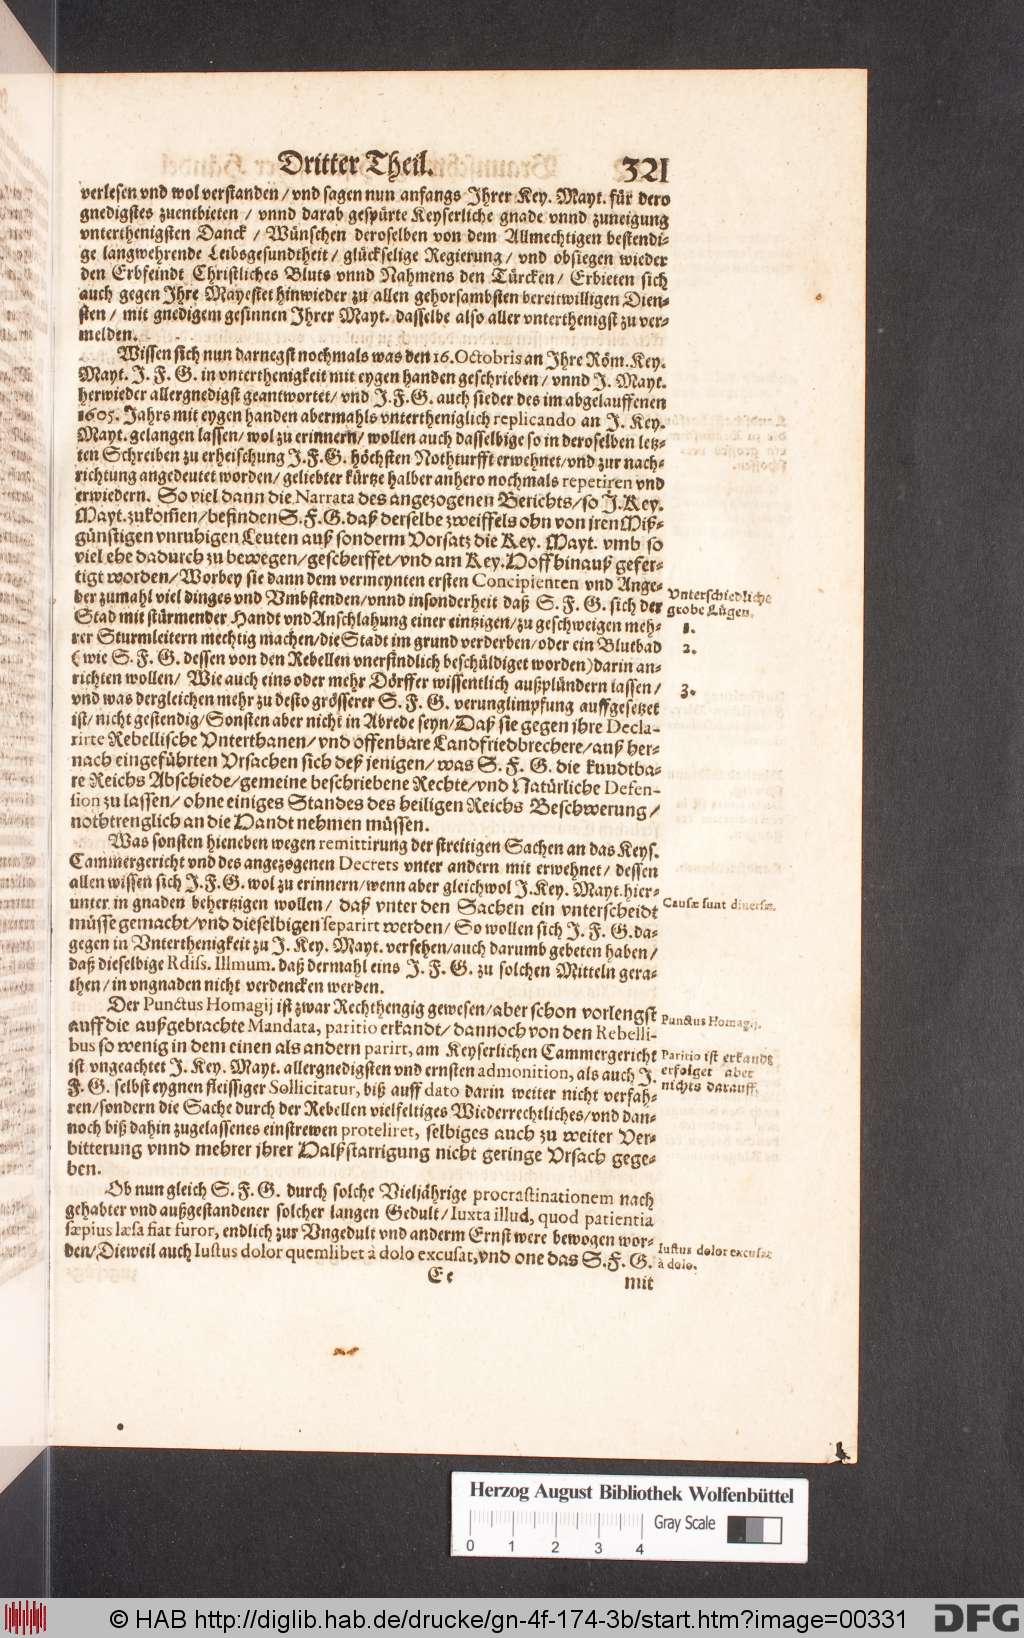 Dritter Theil. 321
verlesen vnd wol verstanden / vnd sagen nun anfangs Ihrer Key. Mayt. für dero
gnedigstes zuentbieten / vnnd darab gespürte Keyserliche gnade vnnd zuneigung
vnterthenigsten Danck / Wünschen deroselben von dem Allmechtigen bestendi-
ge langwehrende Leibsgesundtheit / glückselige Regierung / vnd obsiegen wieder
den Erbfeindt Christliches Bluts vnnd Nahmens den Türcken / Erbieten sich
auch gegen Ihre Mayestet hinwieder zu allen gehorsambsten bereitwilligen Dien-
sten / mit gnedigem gesinnen Ihrer Mayt. dasselbe also aller vnterthenigst zu ver-
melden.
Wissen sich nun darnegst nochmals was den 16. Octobris an Ihre Röm. Key.
Mayt. J. F. G. in vnterthenigkeit mit eygen handen geschrieben / vnnd J. Mayt.
herwieder allergnedigst geantwortet / vnd J. F. G. auch sieder des im abgelauffenen
1605. Jahrs mit eygen handen abermahls vntertheniglich replicando an J. Key.
Mayt. gelangen lassen / wol zu erinnern / wollen auch dasselbige so in deroselben letz-
ten Schreiben zu erheischung J. F. G. höchsten Nothturfft erwehnet / vnd zur nach-
richtung angedeutet worden / geliebter kürtze halber anhero nochmals repetiren vnd
erwiedern. So viel dann die Narrata des angezogenen Berichts / so J. Key.
Mayt. zukom̃en / befinden S. F. G. daß derselbe zweiffels ohn von jren Miß-
günstigen vnruhigen Leuten auß sonderm Vorsatz die Key. Mayt. vmb so
viel ehe dadurch zu bewegen / gescherffet / vnd am Key. Hoff hinauß gefer-
tigt worden / Worbey sie dann dem vermeynten ersten Concipienten vnd Ange-
ber zumahl viel dinges vnd Vmbstenden / vnnd insonderheit daß S. F. G. sich der
Stad mit stürmender Handt vnd Anschlahung einer eintzigen / zu geschweigen meh-
rer Sturmleitern mechtig machen / die Stadt im grund verderben / oder ein Blutbad
(wie S. F. G. dessen von den Rebellen vnerfindlich beschüldiget worden) darin an-
richten wollen / Wie auch eins oder mehr Dörffer wissentlich außplündern lassen /
vnd was dergleichen mehr zu desto grösserer S. F. G. verunglimpfung auffgesetzet
ist / nicht gestendig / Sonsten aber nicht in Abrede seyn / Daß sie gegen jhre Decla-
rirte Rebellische Vnterthanen / vnd offenbare Landfriedbrechere / auß her-
nach eingeführten Vrsachen sich deß jenigen / was S. F. G. die kuudtba-
re Reichs Abschiede / gemeine beschriebene Rechte / vnd Natürliche Defen-
sion zu lassen / ohne einiges Standes des heiligen Reichs Beschwerung /
nothtrenglich an die Handt nehmen müssen.
Was sonsten hieneben wegen remittirung der streitigen Sachen an das Keys.
Cammergericht vnd des angezogenen Decrets vnter andern mit erwehnet / dessen
allen wissen sich J. F. G. wol zu erinnern / wenn aber gleichwol J. Key. Mayt. hier-
unter in gnaden behertzigen wollen / daß vnter den Sachen ein vnterscheidt
müsse gemacht / vnd dieselbigen separirt werden / So wollen sich J. F. G. da-
gegen in Vnterthenigkeit zu J. Key. Mayt. versehen / auch darumb gebeten haben /
daß dieselbige Rdiss. Illmum. daß dermahl eins J. F. G. zu solchen Mitteln gera-
then / in vngnaden nicht verdencken werden.
Der Punctus Homagij ist zwar Rechthengig gewesen / aber schon vorlengst
auff die außgebrachte Mandata, paritio erkandt / dannoch von den Rebelli-
bus so wenig in dem einen als andern parirt, am Keyserlichen Cammergericht
ist vngeachtet J. Key. Mayt. allergnedigsten vnd ernsten admonition, als auch J.
F. G. selbst eygnen fleissiger Sollicitatur, biß auff dato darin weiter nicht verfah-
ren / sondern die Sache durch der Rebellen vielfeltiges Wiederrechtliches / vnd dan-
noch biß dahin zugelassenes einstrewen proteliret, selbiges auch zu weiter Ver-
bitterung vnnd mehrer jhrer Halßstarrigung nicht geringe Vrsach gege-
ben.
Ob nun gleich S. F. G. durch solche Vieljährige procrastinationem nach
gehabter vnd außgestandener solcher langen Gedult / Iuxta illud, quod patientia
sæpius læsa fiat furor, endlich zur Vngedult vnd anderm Ernst were bewogen wor-
den / Dieweil auch Iustus dolor quemlibet à dolo excusat, vnd one das S. F. G.
Ee mit
Vnterschiedliche
grobe Lügen.
1.
2.
3.
Causæ sunt diuersæ.
Punctus Homagij.
Paritio ist erkandt
erfolget aber
nichts darauff.
Iustus dolor excusat
à dolo.
Herzog August Bibliothek Wolfenbüttel
0 1 2 3 4
Gray Scale
© HAB http://diglib.hab.de/drucke/gn-4f-174-3b/start.htm?image=00331
DFG